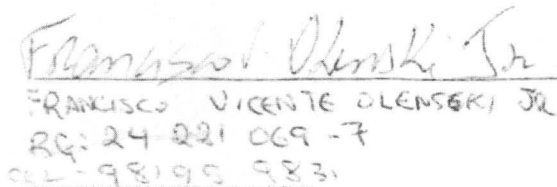 Francisco V. Olenski Jr
FRANCISCO VICENTE OLENSKI JR
RG: 24 221 069-7
CEL - 98195 983